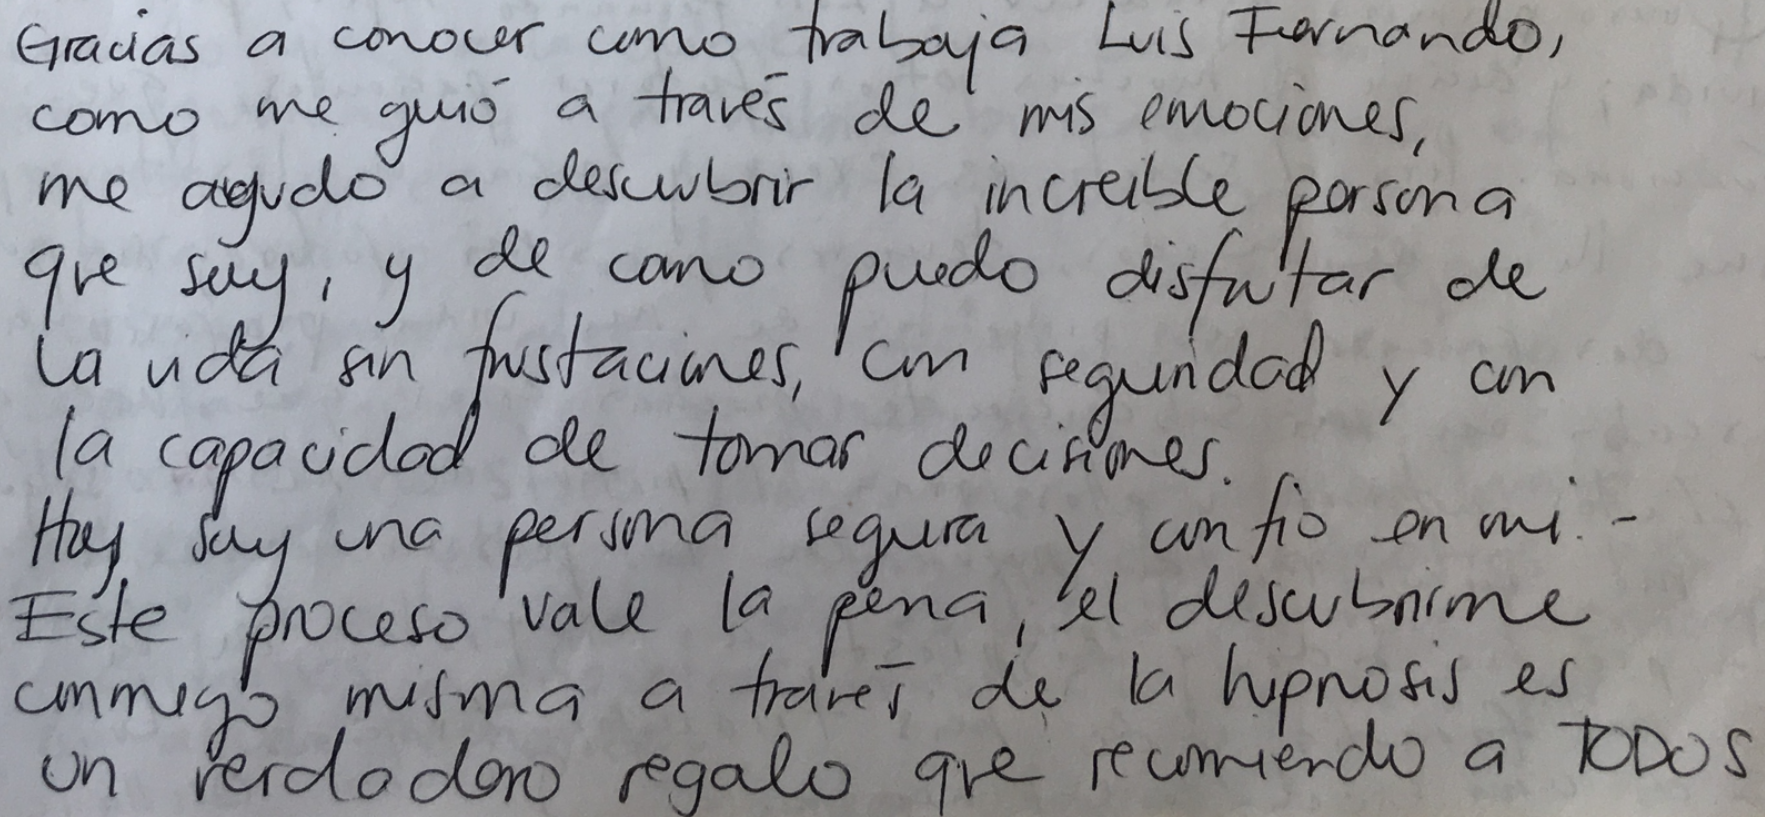 Gracias a conocer como trabaja Luis Fernando,
como me guió a través de mis emociones,
me agudó a descubrir la increible persona
que soy, y de como puedo disfrutar de
la vida sin frustaciones, con seguridad y con
la capacidad de tomar decisiones.
Hoy soy una persona segura y confio en mi. -
Este proceso vale la pena, el descubrirme
conmigo misma a través de la hipnosis es
un verdadero regalo que recomiendo a TODOS